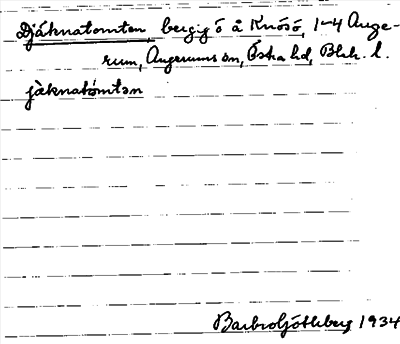 Djäknatomten, bergig ö å Knösö, 1-4 Auge-
rum, Augerums sn, Östra hd, Blek. l.
jàknatómtən
Barbro Götleberg 1934